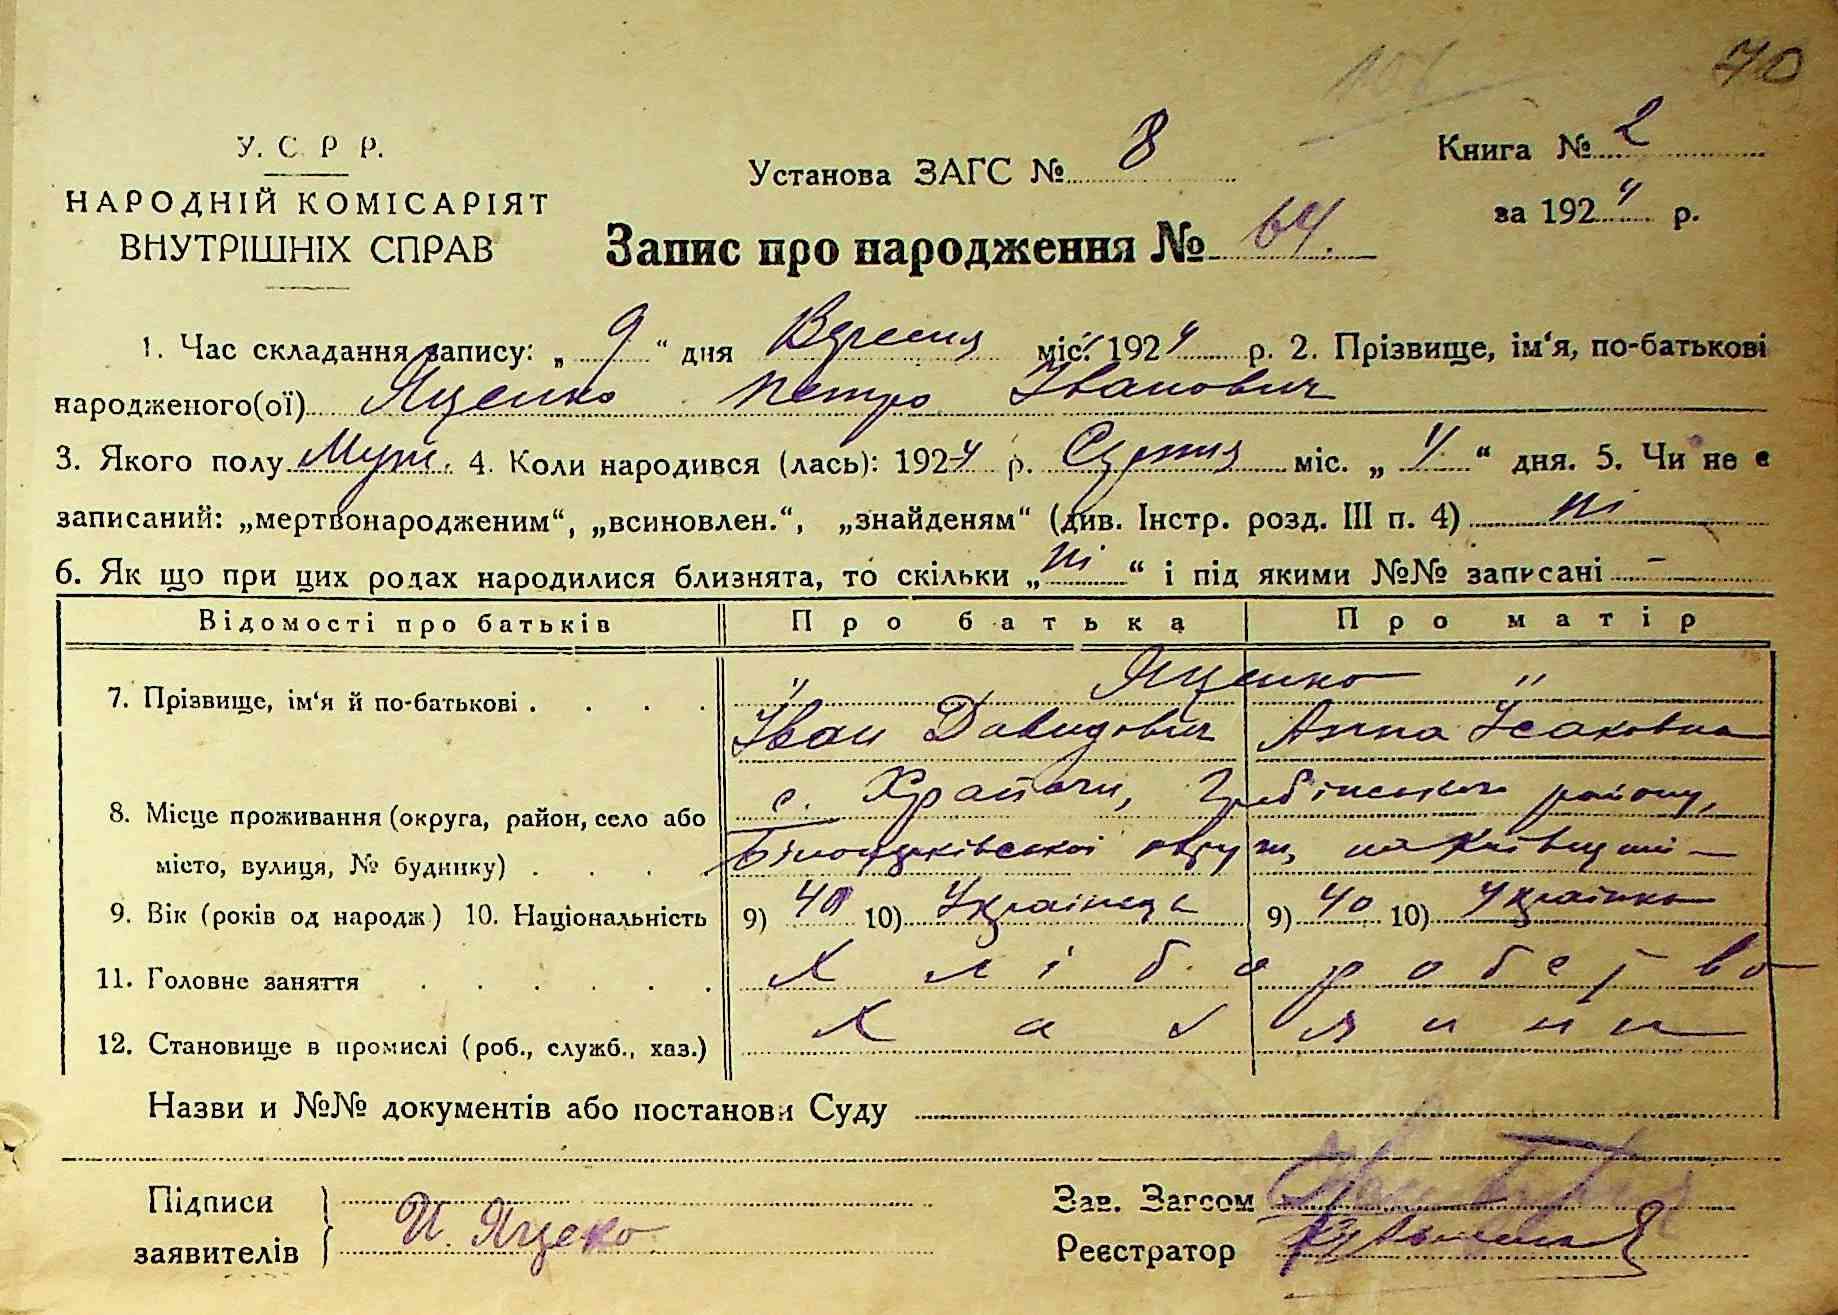 70
У. С. Р. Р.
НАРОДНІЙ КОМІСАРІЯТ
ВНУТРІШНІХ СПРАВ
Установа ЗАГС № 8
Книга № 2
за 1924 р.
Запис про народження № 64.
1. Час складання запису: „ 9 “ дня Вересня міс. 1924 р. 2. Прізвище, ім‘я, по-батькові
народженого(ої) Яценко Петро Іванович
3. Якого полу Муж. 4. Коли народився (лась): 1924 р. Серпня міс. „ 4 “ дня. 5. Чи не є
записаний: „мертвонародженим“, „всиновлен.“, „знайденям“ (див. Інстр. розд. III п. 4) ні
6. Як що при цих родах народилися близнята, то скільки „ ні “ і під якими №№ записані –
Відомості про батьків Про батька Про матір
7. Прізвище, ім‘я й по-батькові . . . . " Яценко "
Іван Давидович Анна Ісаковна
8. Місце проживання (округа, район, село або с. Храпачи, Гребінського району,
місто, вулиця, № будинку) . . . . Білоцерківської округи, на Київщині –
9. Вік (років од народж.) 10. Національність 9) 40 10) Українець 9) 40 10) Українка
11. Головне заняття . . . . . . Хліборобство
12. Становище в промислі (роб., служб., хаз.) Хазяини
Назви и №№ документів або постанови Суду
Підписи
заявителів
И. Яцеко
Зав. Загсом
Реєстратор